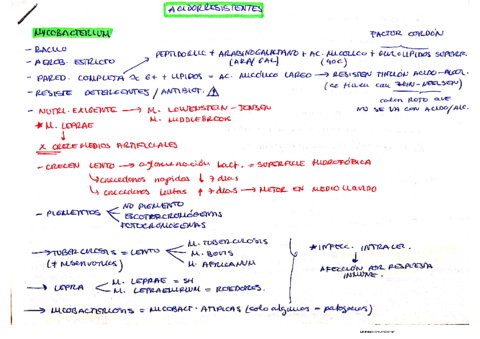 ACIDORRESISTENTES
MYCOBACTERIUM
FACTOR CORDÓN
- BACILO
- AEROB. ESTRICTO
PEPTIDOGLIC + ARABINOGALACTANO + AC. MICÓLICO + GLUCOLÍPIDOS SUPERF.
(ARA/GAL) (90C)
- PARED COMPLETA ≈ G+ + LÍPIDOS = AC. MICÓLICO LARGO → RESISTEN TINCIÓN ACIDO-ALCOL.
(se tiñen con ZIEHL-NEELSEN)
- RESISTE DETERGENTES / ANTIBIOT.
COLOR ROJO QUE
NO SE VA CON ACIDO/ALC.
- NUTRI. EXIGENTE → M. LOWENSTEIN-JENSEN
M. MIDDLEBROOK
* M. LEPRAE
X CRECE MEDIOS ARTIFICIALES
- CRECEN LENTO → aglomeración bact. = SUPERFICIE HIDROFÓBICA
crecedores rápidos ↓ 7 días
crecedores lentos ↑ 7 días → MEJOR EN MEDIO LÍQUIDO
- PIGMENTOS
NO PIGMENTO
ESCOTOCROMÓGENAS
FOTOCROMOGENAS
→ TUBERCULOSIS = LENTO
M. TUBERCULOSIS
M. BOVIS
M. AFRICANUM
* INFECC. INTRACEL.
AFECCIÓN POR RESPUESTA
INMUNE.
→ LEPRA
M. LEPRAE = SH
M. LEPRAEMURIUM = ROEDORES.
→ MICOBACTERIOSIS = MICOBACT. ATÍPICAS (solo algunas = patógenas)